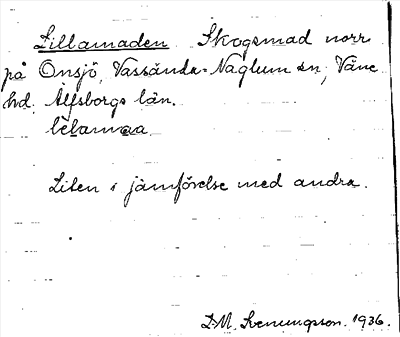 Lillamaden Skogsmad norr
på Onsjö, Vassända-Naglum sn, Väne
hd. Älfsborgs län.
Liten i jämförelse med andra.
D.M. 1936.